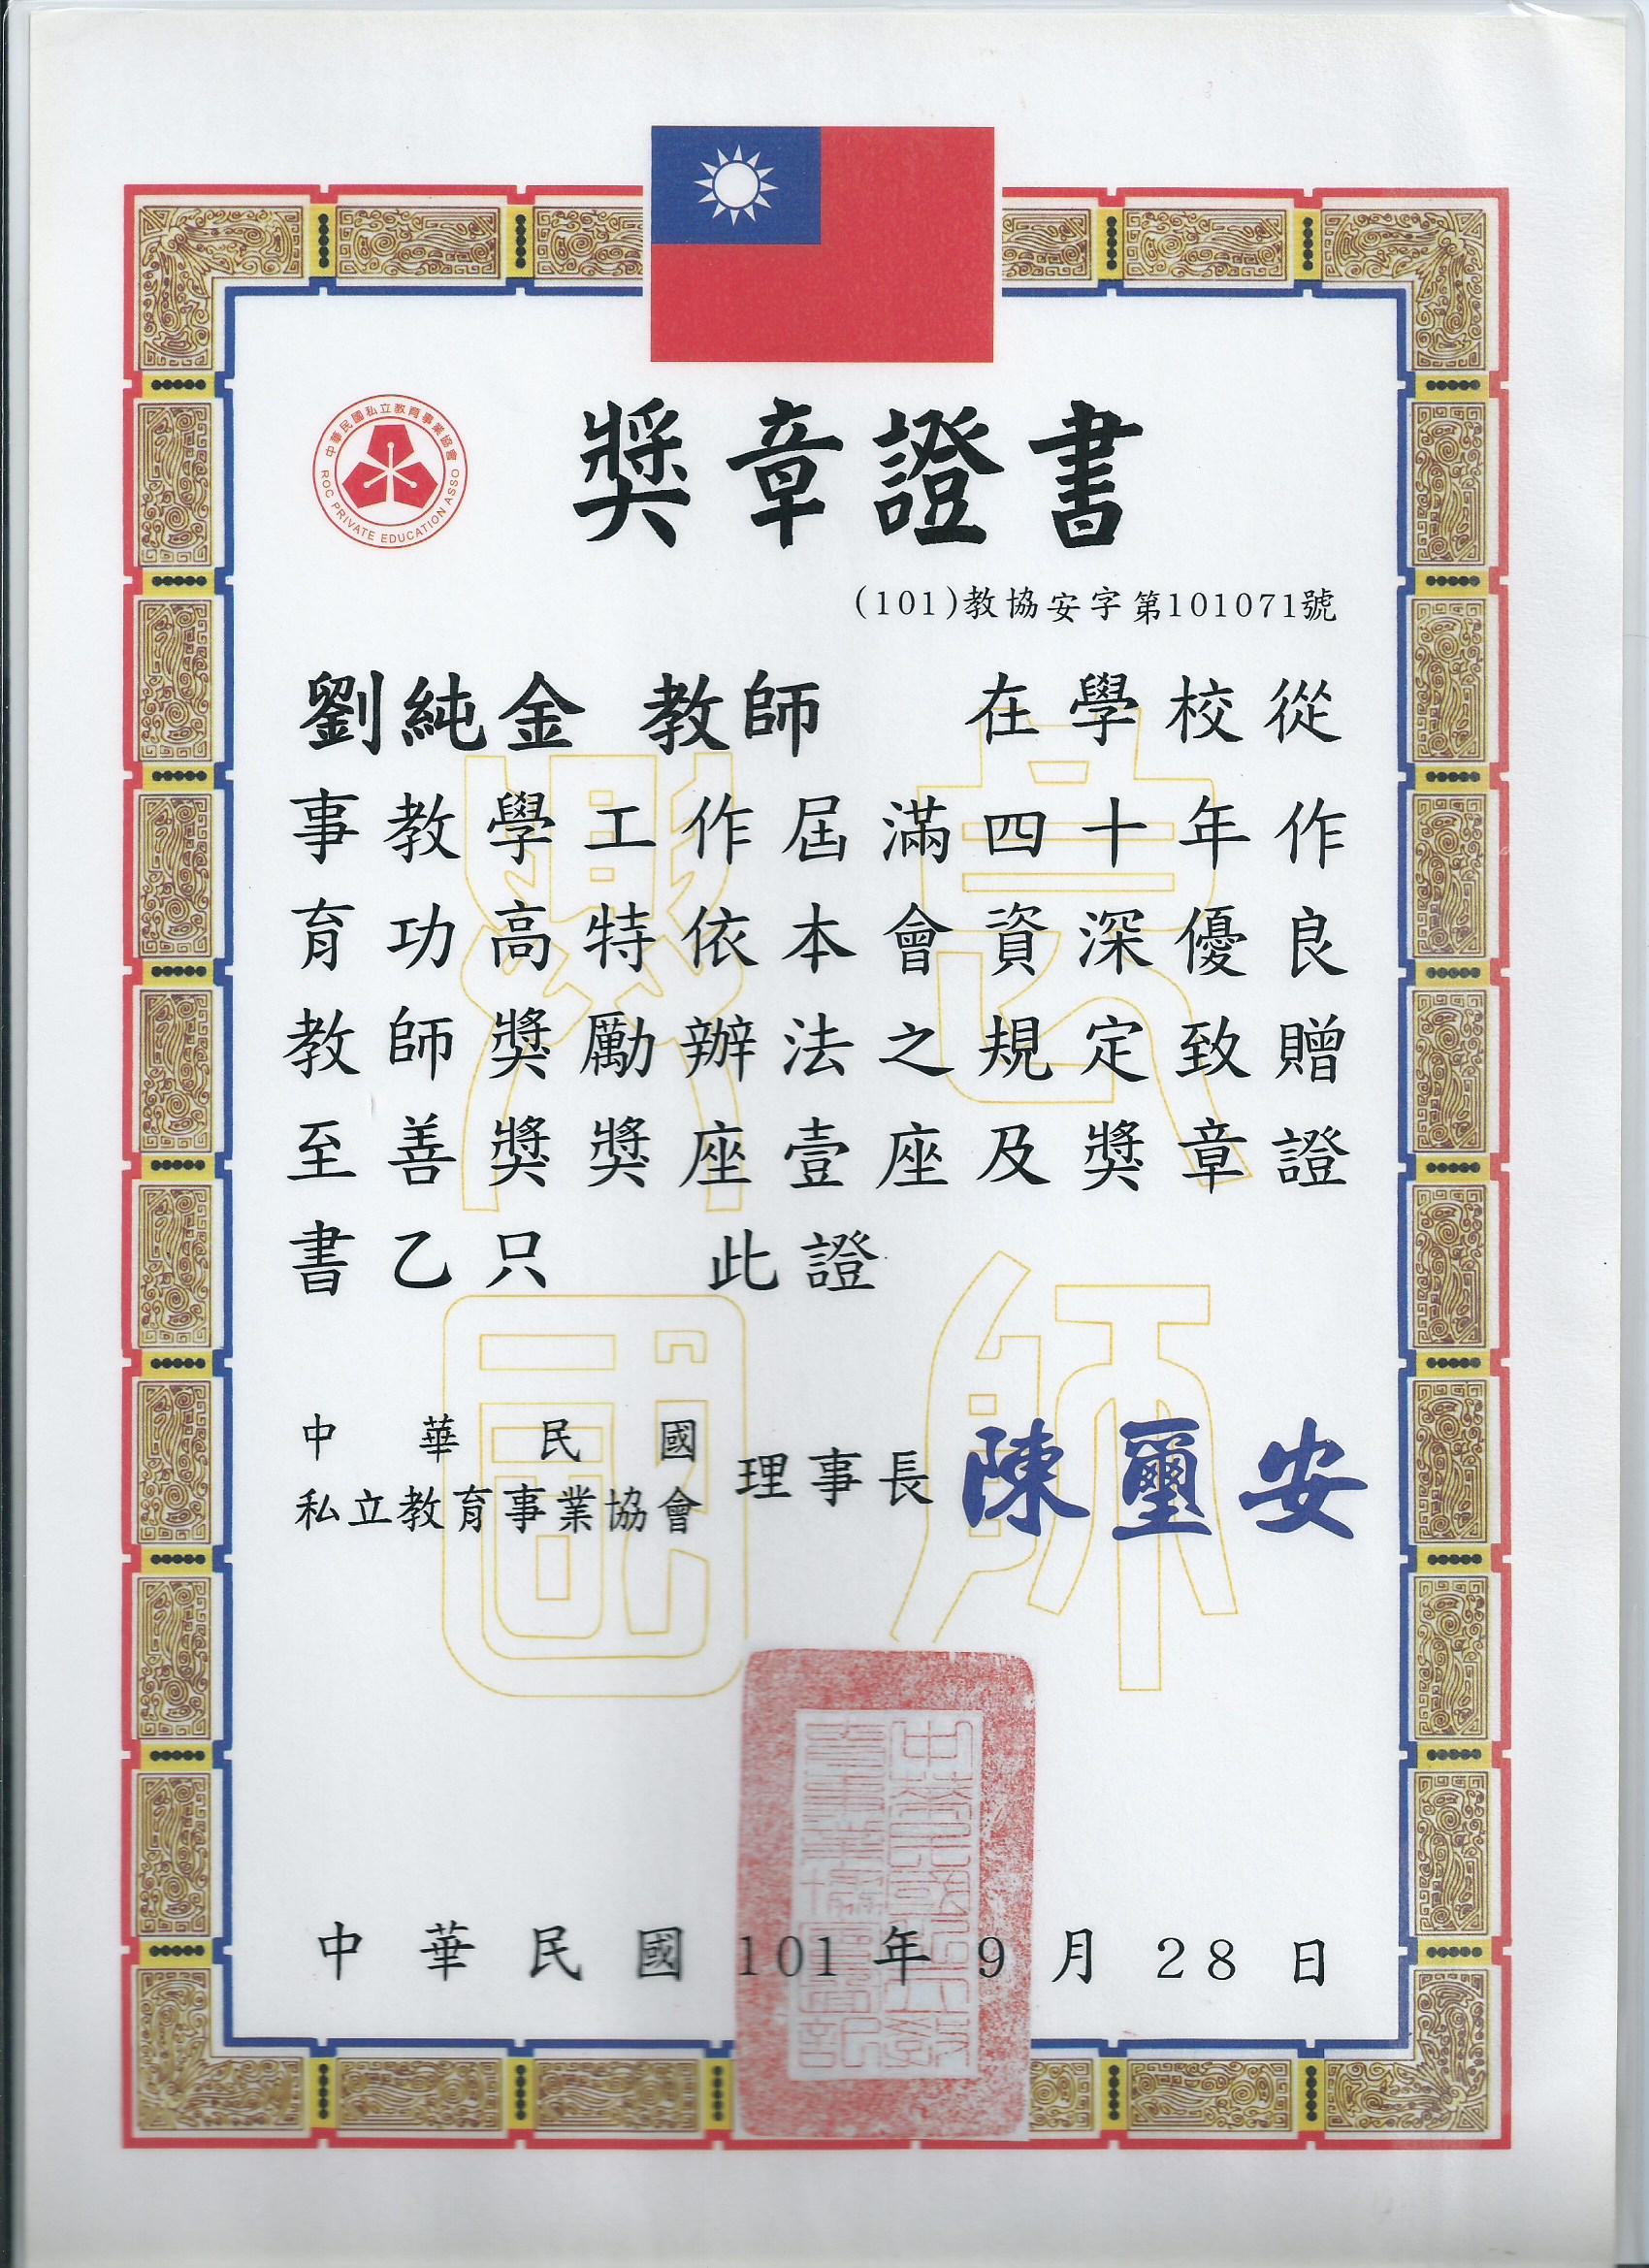 中華民國私立教育事業協會
ROC PRIVATE EDUCATION ASSO
獎章證書
(101)教協安字第101071號
劉純金 教師 在學校從
事教學工作屆滿四十年作
育功高特依本會資深優良
教師獎勵辦法之規定致贈
至善獎獎座壹座及獎章證
書乙只 此證
中華民國
私立教育事業協會
理事長 陳璽安
中華民國101年9月28日